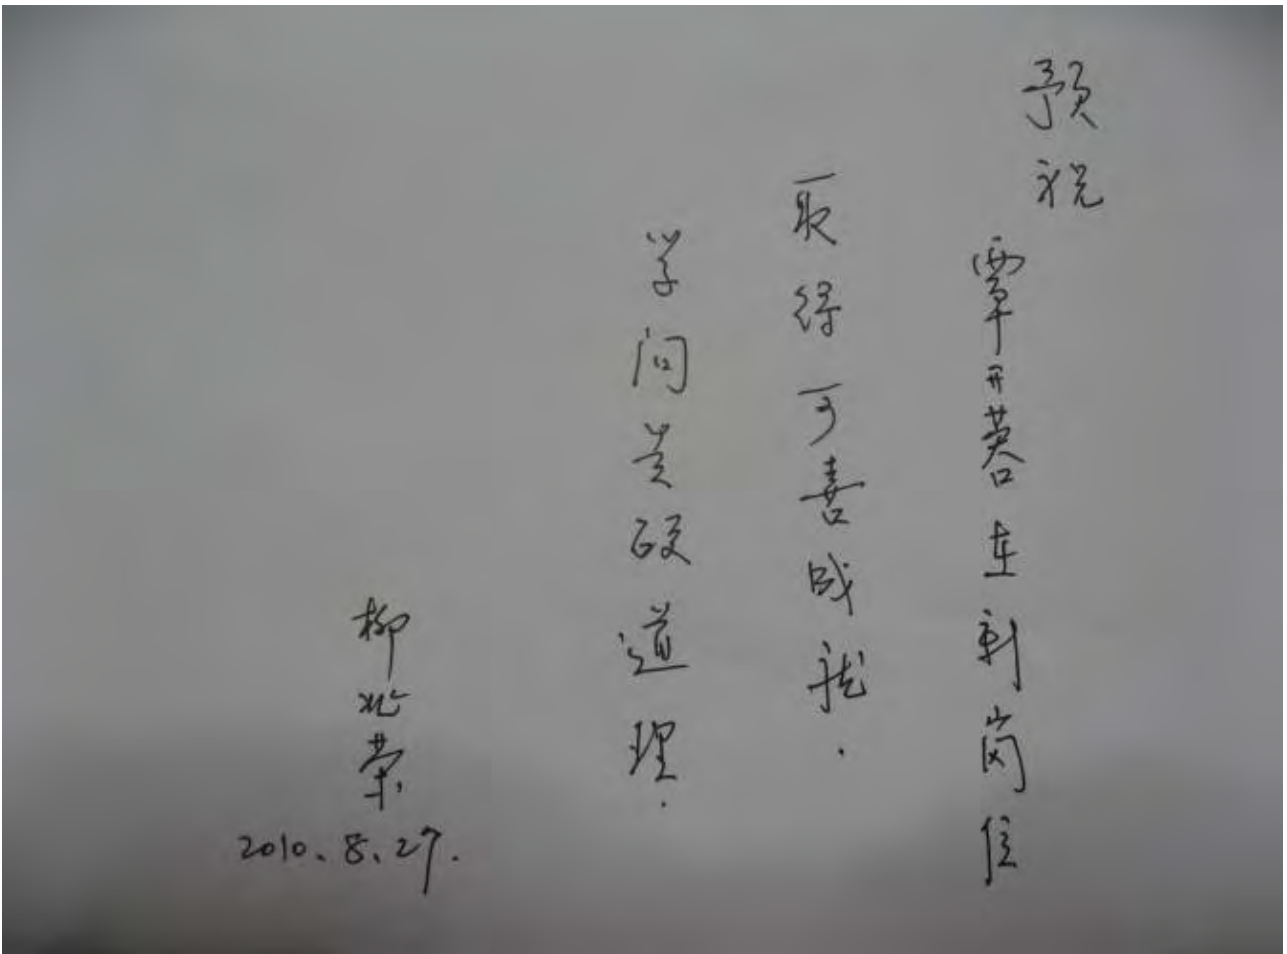 预祝
覃开蓉在新岗位
取得可喜成就.
学问道理.
柳荣
2010.8.27.